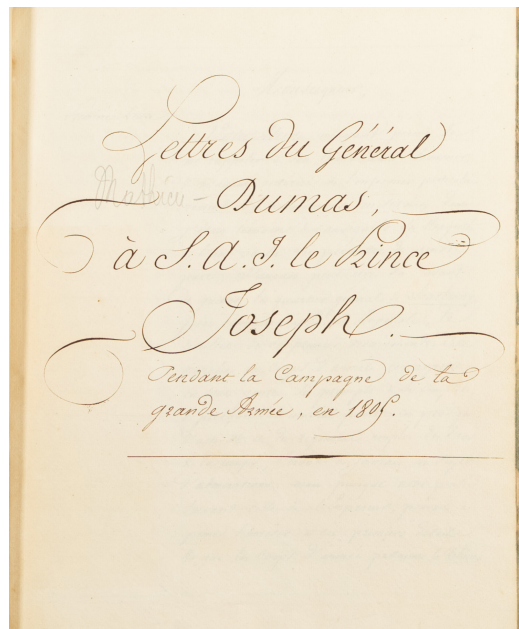 Lettres du Général
Mathieu - Dumas,
à S. A. I. le Prince
Joseph.
Pendant la Campagne de la
grande Armée, en 1805.